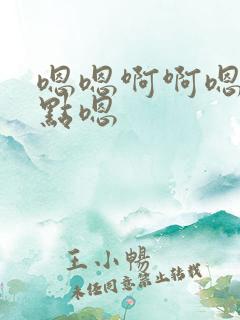 嗯嗯啊啊嗯
點嗯
王小暢
未经同意禁止转载